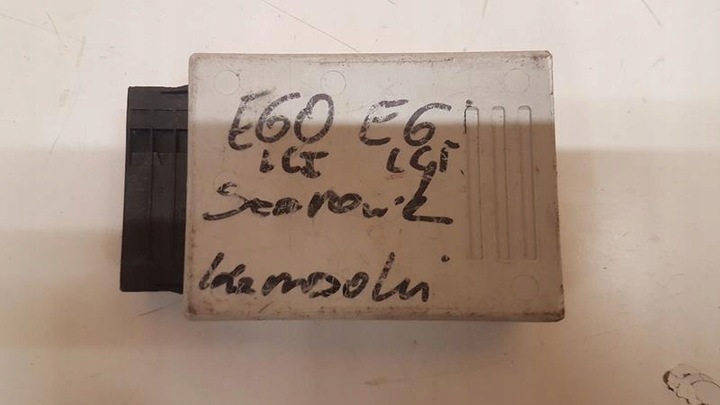 E60 E61
LCI LCI
Sterownik
konsoli